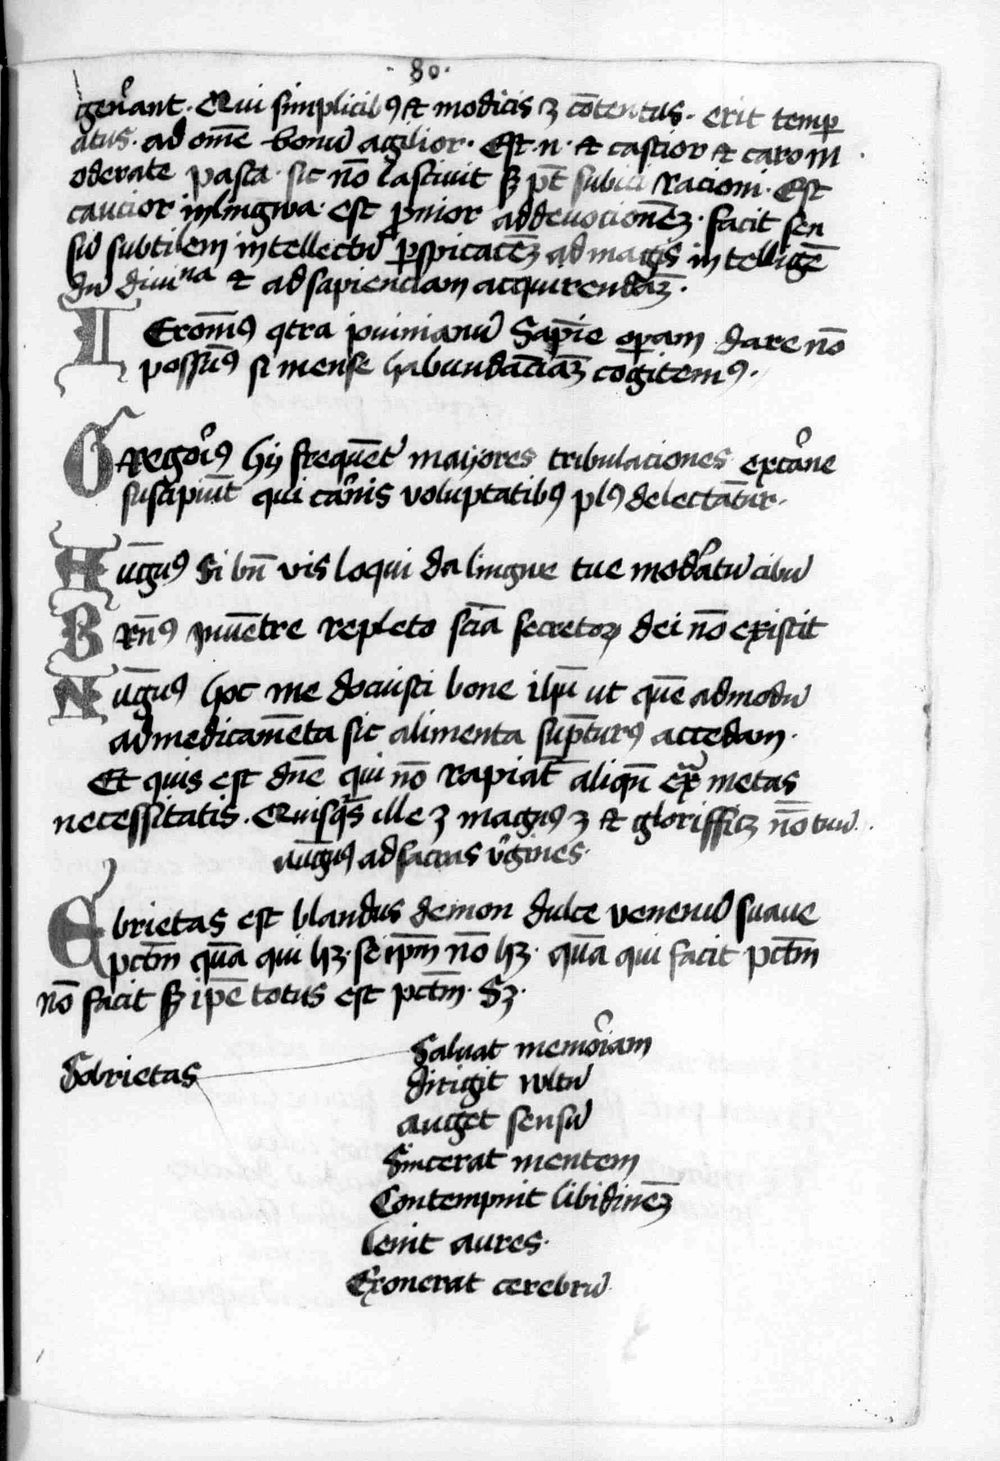 ·80·
gen̄ant· Qui simplicibꝯ et modicis ꝫ cōtentus· erit temp̲
atus· ad om̄e bonū agilior· Est·n· et castior et caro m
oderate pasta· sic nō lasciuit sꝫ pt̄ subici racioni· Est
caucior in lingwa· est p̲nior ad deuotionēꝫ· facit sen
sū subtilem intellectū p̲spicacēꝫ ad magis intelligē
dū diuina et ad sapienciam acquirendāꝫ·
Ieronīꝯ ꝯtra iouinianū Sapīe op̲am dare nō
possum̄ꝯ si mense habundāciāꝫ cogitemꝯ·
Gregōiꝯ hij frequēt̄ maijores tribulaciones ex cār̄ne
suscipiūt qui car̄nis voluptatibꝯ plꝯ delectātur·
Augꝯ Si bn̄ vis loqui da lingue tue mod̄atū cibū
Brn̄ꝯ In uētre repleto sciā secretoꝝ dei nō existit
Augꝯ hoc me docuisti bone ihū ut quē admodū
ad medicamēta sic alimenta sūpturꝯ accedam·
Et quis est dn̄e qui nō rapiat̄ aliqn̄ ex̄ metas
necessitatis· Quisqs̄ ille ꝫ magnꝯ ꝫ et glorifficꝫ nōn tuū
augꝯ ad sacras v̄gines·
Ebrietas est blandus demon dulce venenū suaue
pctm̄ quā qui hꝫ· se ipm̄ nō hꝫ· quā qui facit pctm̄
nō facit sꝫ ipē totus est pctm̄· Sꝫ·
Sobrietas
Saluat memōiam
dirigit wltū
auget sensū
Sincerat mentem
Contempnit libidinēꝫ
lenit aures·
Exonerat cerebrū